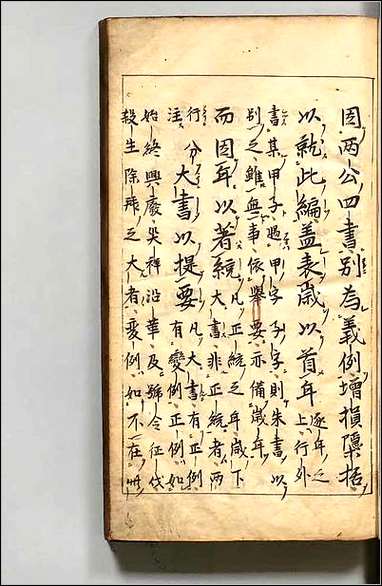 因两公四書別為義例増損檃括
以就此編盖表歳以首年逐年之上行外
書某甲子遇甲字子字則朱書以
別之雖無事依舉要亦備歳年
而因年以著統凡正統之年歳下大書非正統者兩
行分注大書以提要凡大書有正例有變例正例如
始終興廢災祥沿革及號令征伐
殺生除拜之大者變例如不在此